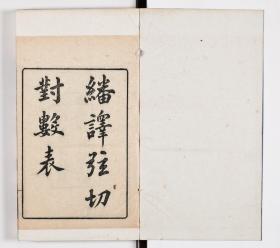 繙譯弦切
對數表